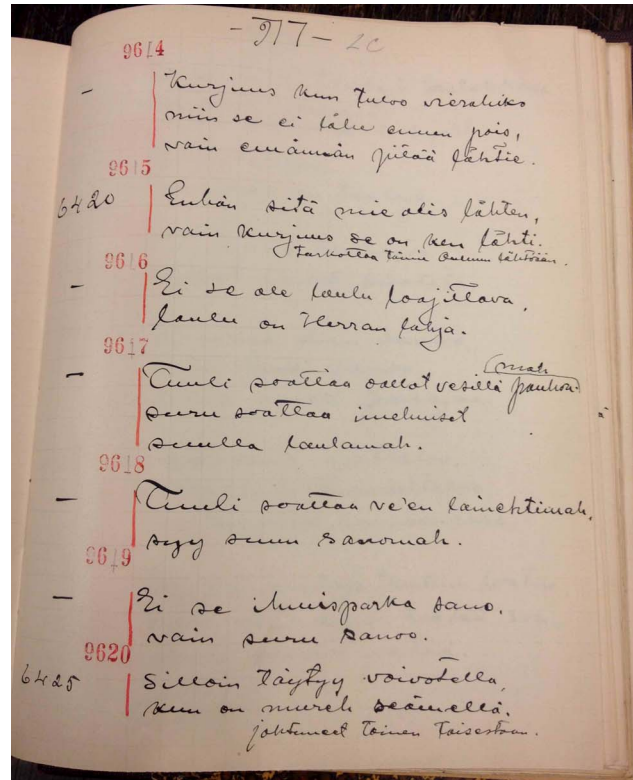 - 317 -
9614
- Kurjuus kun tuloo vierahiksi
niin se ei lähe ennen pois,
vain emännän pitää lähtie.
9615
6420 Enhän sitä mie olis lähten,
vain kurjuus se on ken lähti.
Tarkottaa tännä lähtöään.
9616
- Ei se ole laulu loajittava,
laulu on Herran lahja.
9617
- Tuuli soattaa oallot vesillä pauhoa-
(mah
suru soattaa imehniset
suulla laulamah.
9618
- Tuuli soattaa ve'en lainehtimah,
syy suun sanomah.
9619
- Ei se ihmisparka sano,
vain suru sanoo.
9620
6425 Silloin täytyy voivotella,
kun on mureh seämellä.
johtuneet toinen toisestaan.